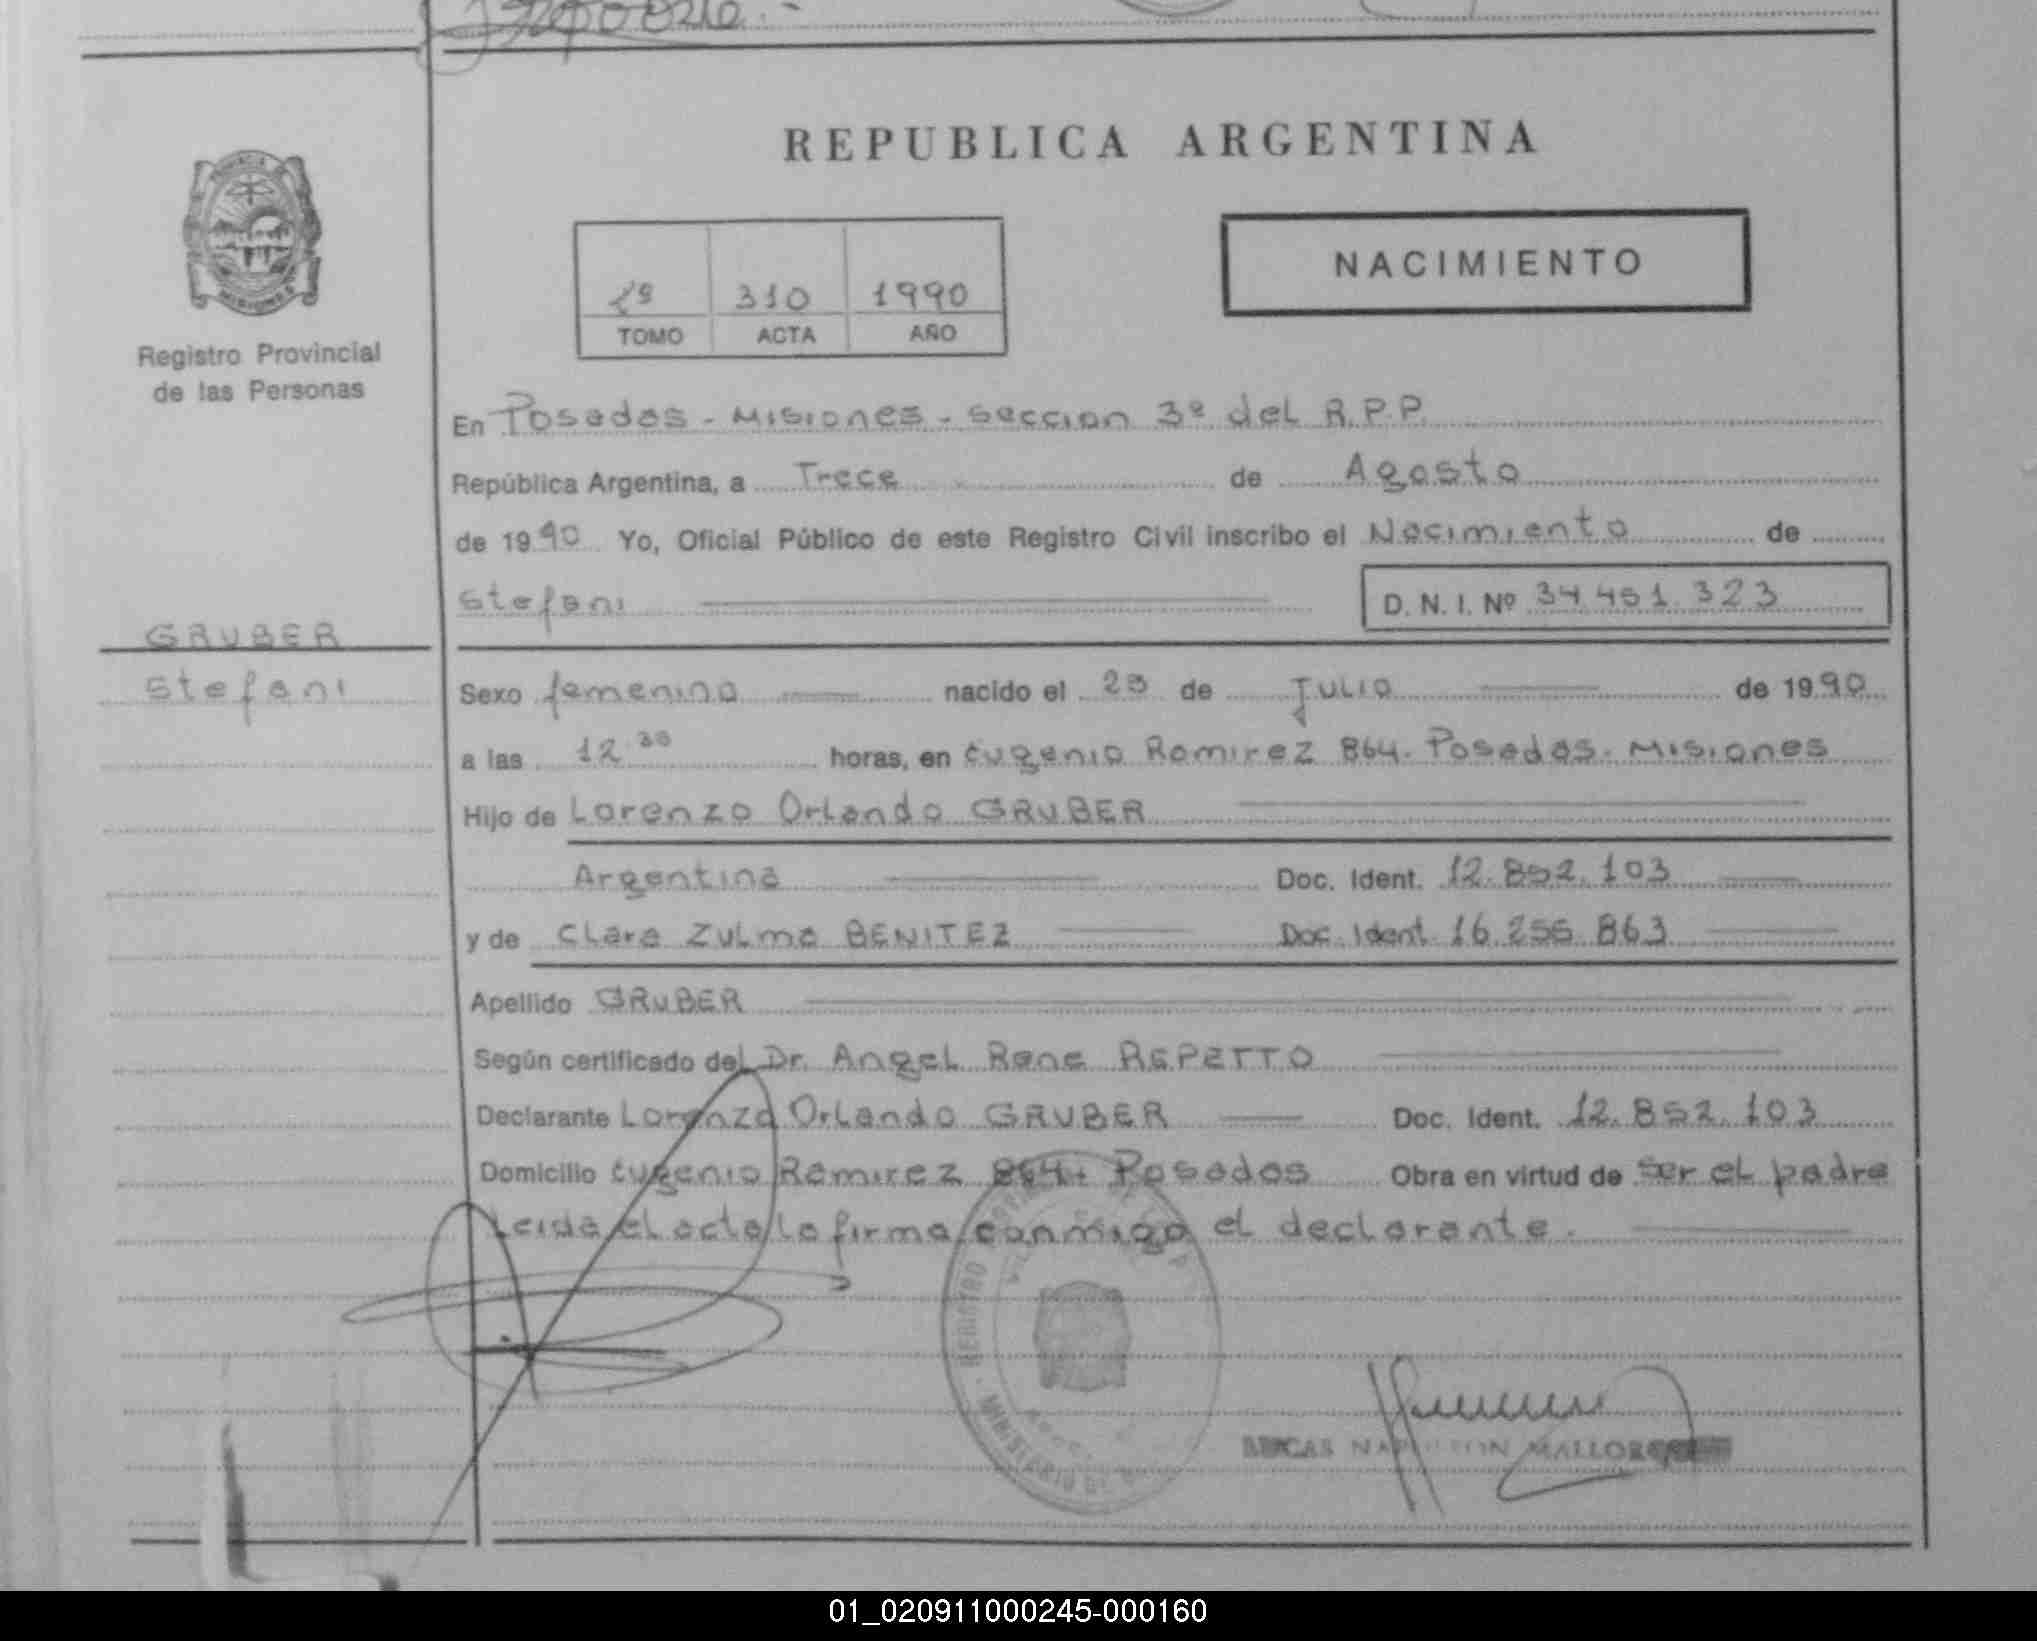 REPUBLICA ARGENTINA
NACIMIENTO
1º 310 1990
TOMO ACTA AÑO
Registro Provincial
de las Personas
En Posadas - Misiones - Seccion 3º del R.P.P.
República Argentina, a Trece de Agosto
de 1990 Yo, Oficial Público de este Registro Civil inscribo el Nacimiento de
Stefani D. N. I. Nº 34.451.323
GRUBER
Stefani
Sexo femenino nacido el 23 de Julio de 1990
a las 12 30 horas, en Eugenio Ramirez 864. Posadas. Misiones
Hijo de Lorenzo Orlando GRUBER
Argentina Doc. Ident. 12.852.103
y de Clara Zulma BENITEZ Doc. Ident. 16.256.863
Apellido GRUBER
Según certificado del Dr. Angel Rene REPETTO
Declarante Lorenzo Orlando GRUBER Doc. Ident. 12.852.103
Domicilio Eugenio Ramirez 864. Posadas Obra en virtud de ser el padre
Leida el acta la firma conmigo el declarante.
REGISTRO
MINISTERIO DE
LUCAS NAPOLEON
01_020911000245-000160